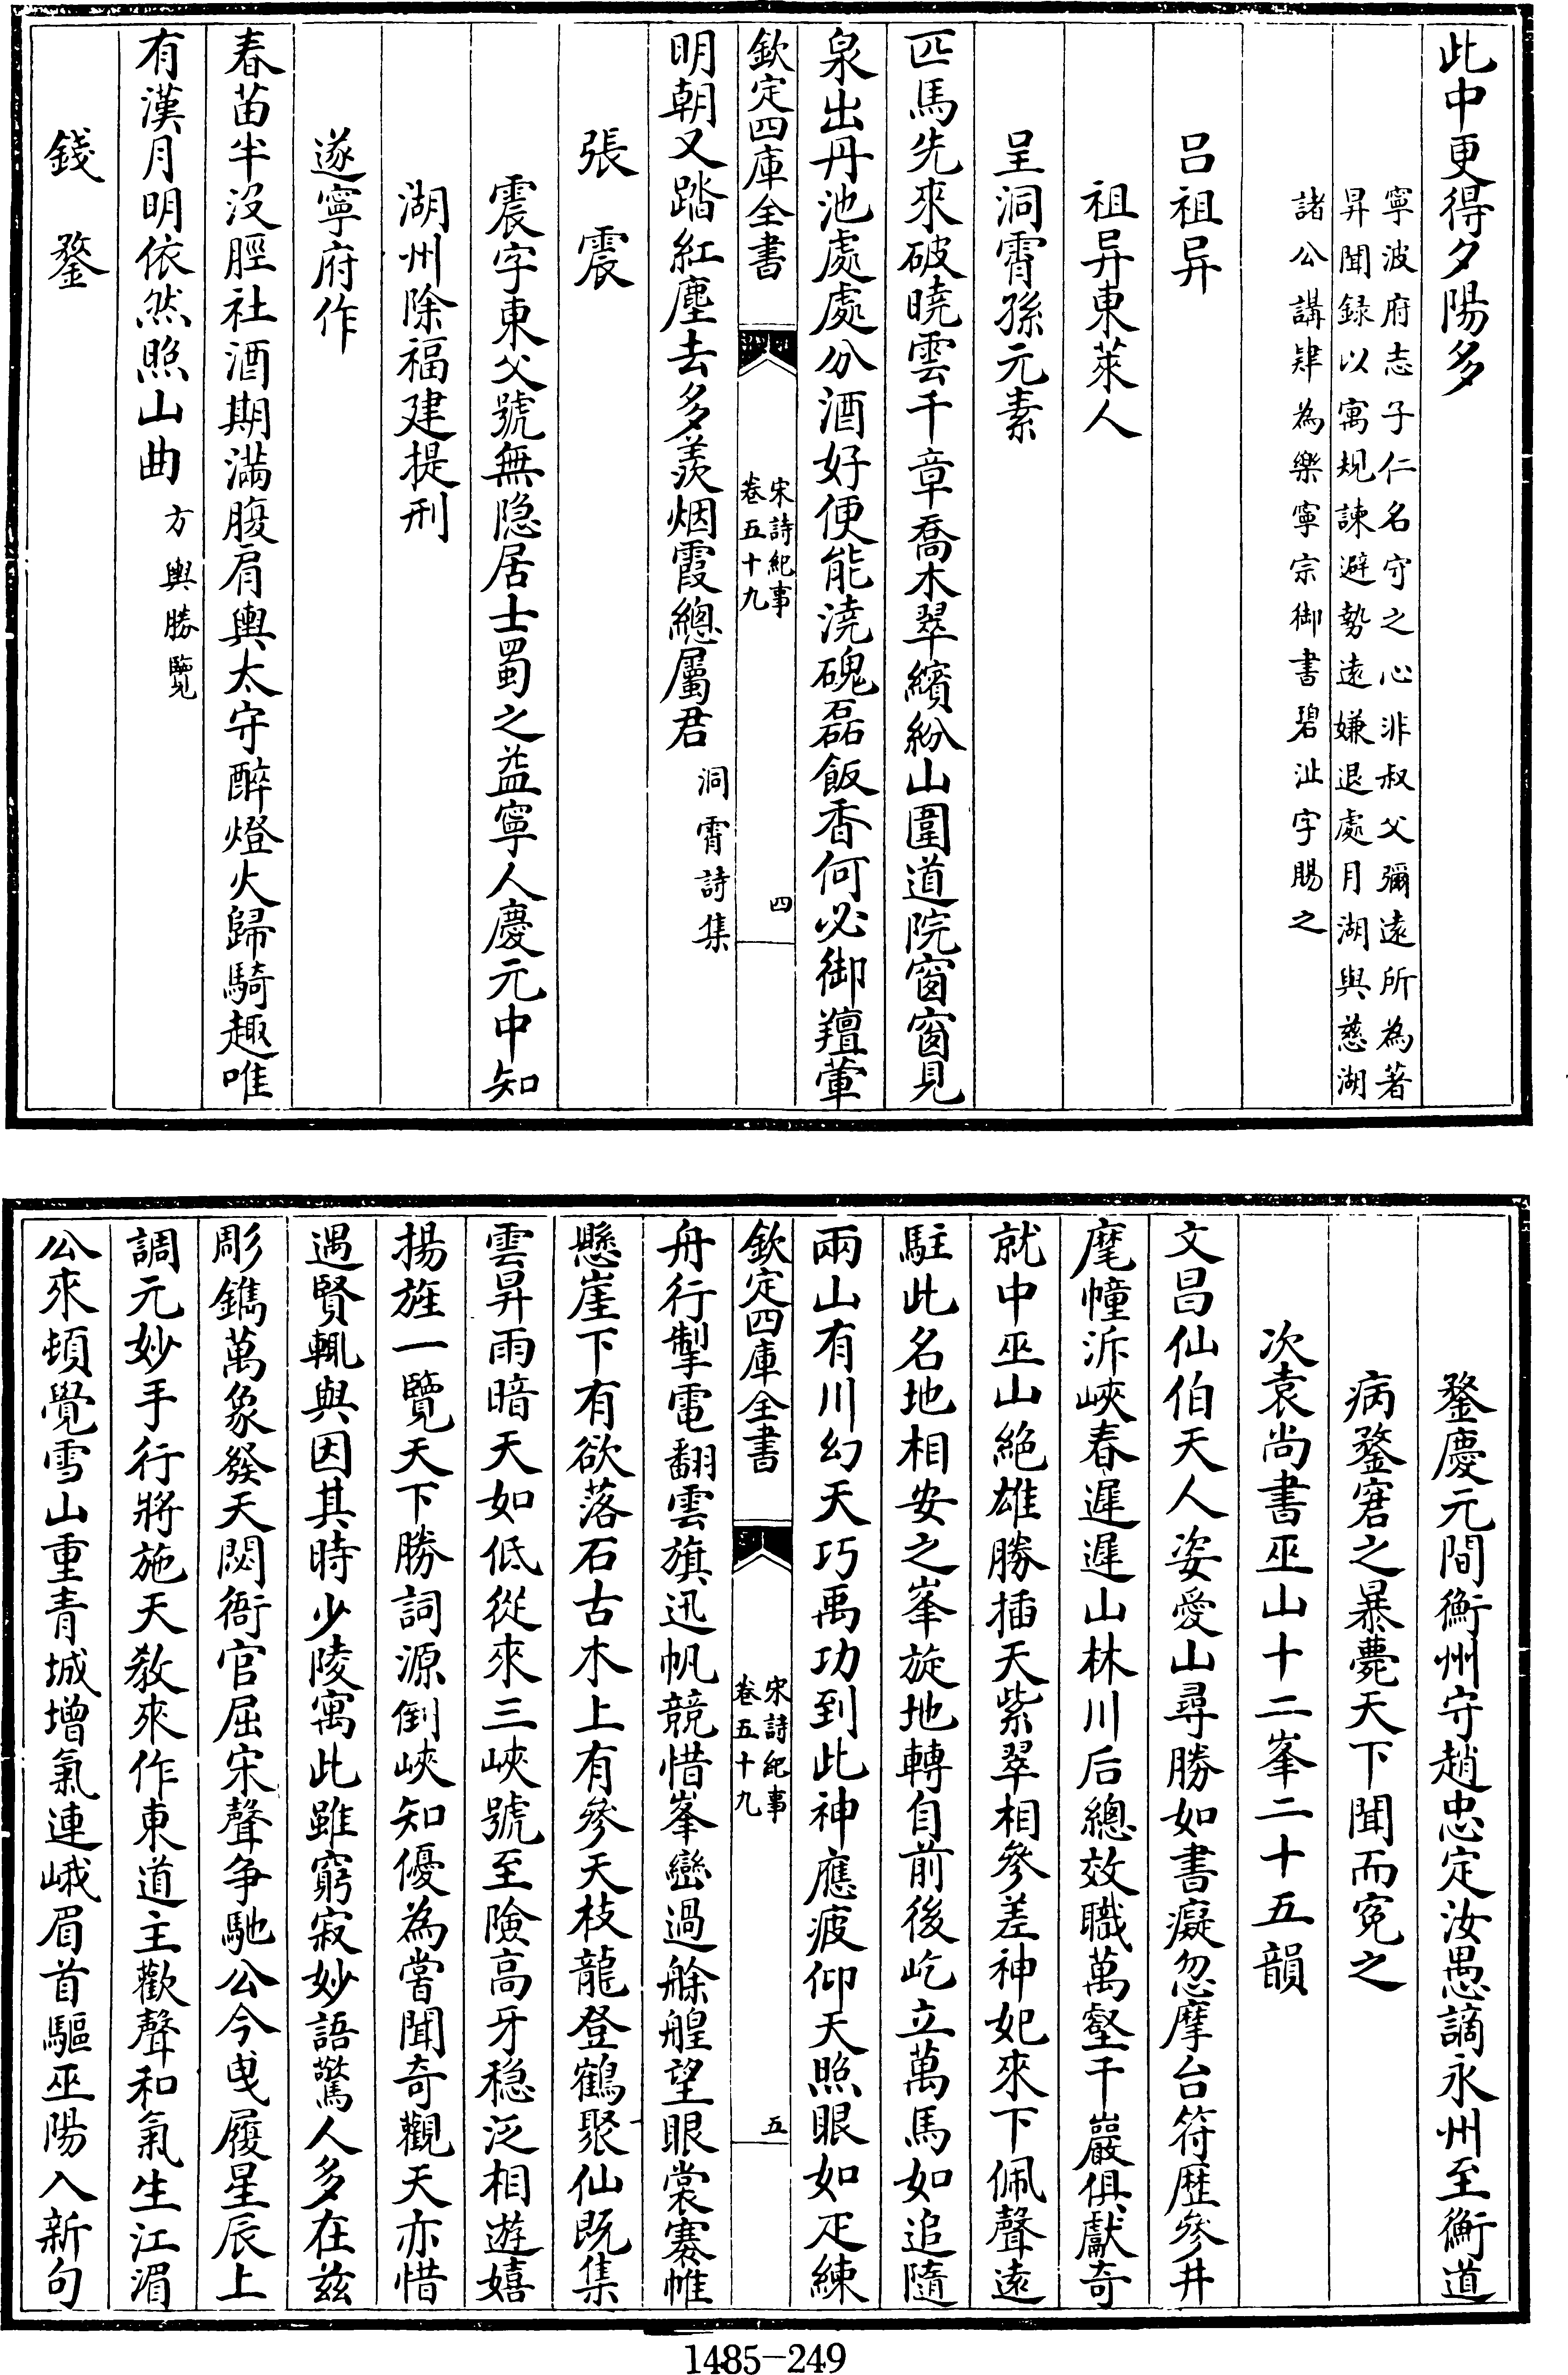 此中更得夕陽多
寧波府志子仁名守之心非叔父彌遠所為著
昇聞録以寓規諫避勢遠嫌退處月湖與慈湖
諸公講肄為樂寧宗御書碧沚字賜之
吕祖异
祖异東萊人
呈洞霄孫元素
匹馬先來破曉雲千章喬木翠繽紛山圍道院窗窗見
泉出丹池處處分酒好便能澆磈磊飯香何必御羶葷
欽定四庫全書
宋詩紀事
卷五十九
四
明朝又踏紅塵去多羨烟霞總屬君 洞霄詩集
張震
震字東父號無隐居士蜀之益寧人慶元中知
湖州除福建提刑
遂寧府作
春苗半没脛社酒期滿腹肩輿太守醉燈火歸騎趣唯
有漢月明依然照山曲 方輿勝覽
錢鍪
鍪慶元間衡州守趙忠定汝愚謫永州至衡道
病鍪窘之暴薨天下聞而寃之
次袁尚書巫山十二峯二十五韻
文昌仙伯天人姿愛山尋勝如書癡忽摩台符歷參井
麾幢泝峽春遲遲山林川后總效職萬壑千巖俱獻奇
就中巫山絶雄勝插天紫翠相參差神妃來下佩聲遠
駐此名地相安之峯旋地轉自前後屹立萬馬如追隨
兩山有川幻天巧禹功到此神應疲仰天照眼如疋練
欽定四庫全書
宋詩紀事
卷五十九
五
舟行掣電翻雲旗迅帆競惜峯巒過艅艎望眼裳褰帷
懸崖下有欲落石古木上有參天枝龍登鶴聚仙既集
雲昇雨暗天如低從來三峽號至險高牙穏泛相遊嬉
揚旌一覽天下勝詞源倒峽知優為嘗聞奇觀天亦惜
遇賢輒與因其時少陵寓此雖窮寂妙語驚人多在兹
彫鐫萬象發天閟衙官屈宋聲争馳公今曳履星辰上
調元妙手行將施天教來作東道主歡聲和氣生江湄
公來頓覺雪山重青城增氣連峨眉首驅巫陽入新句
1485—249